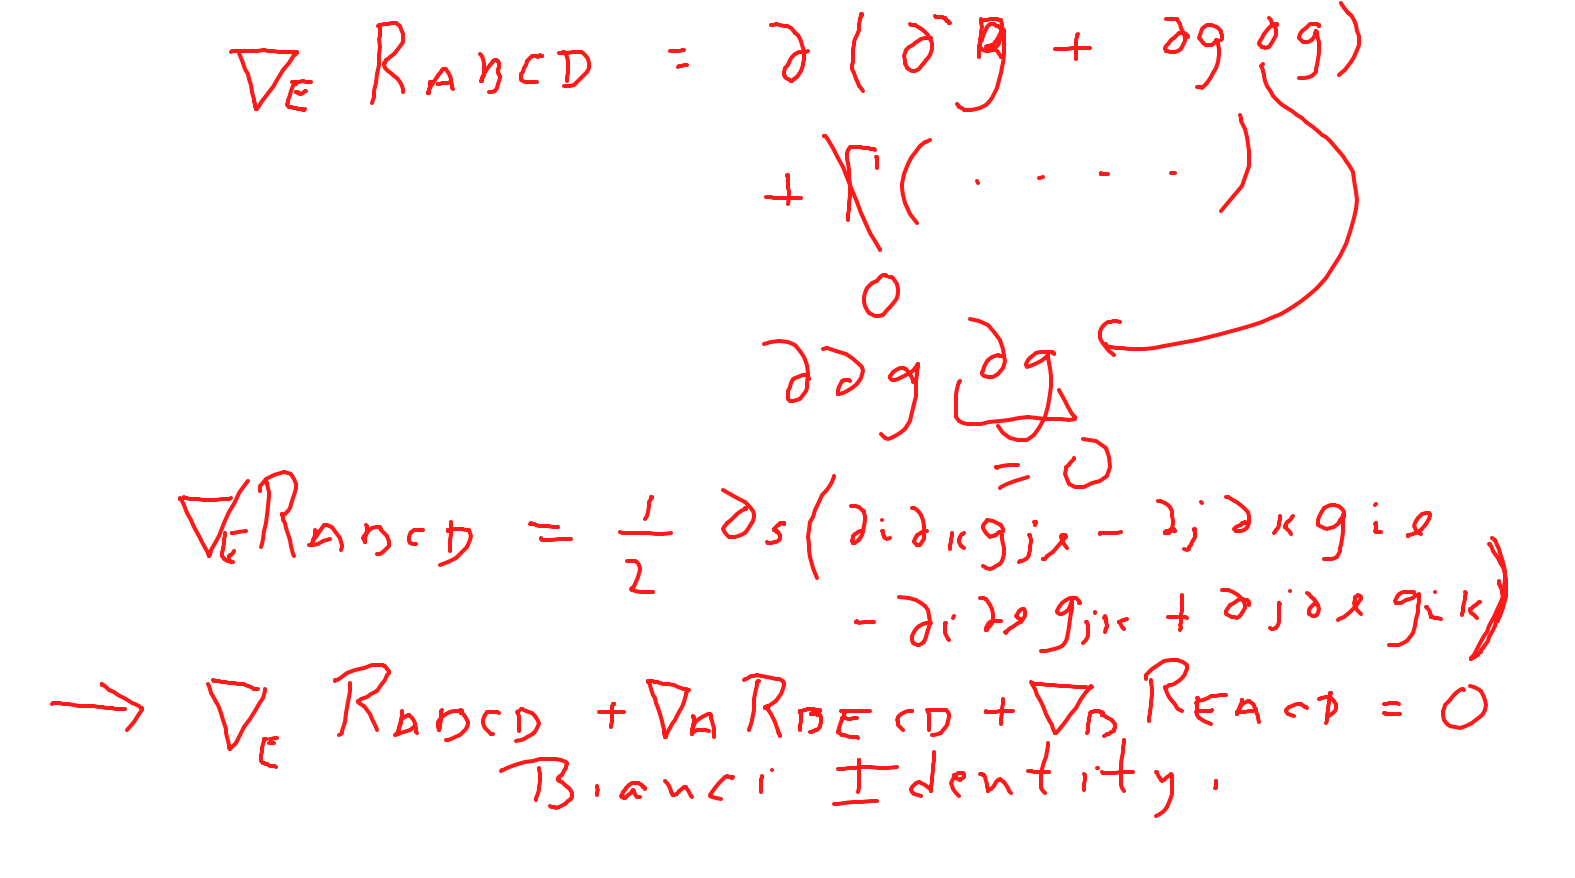 ∇_E R_ABCD = ∂(∂²g + ∂g∂g)
+ Γ(. . . .)
0
∂∂g ∂g
= 0
∇_E R_ABCD = 1/2 ∂_s(∂_i∂_k g_jl - ∂_j∂_k g_il
- ∂_i∂_l g_jk + ∂_j∂_l g_ik)
→ ∇_E R_ABCD + ∇_A R_BECD + ∇_B R_EACD = 0
Bianci Identity.